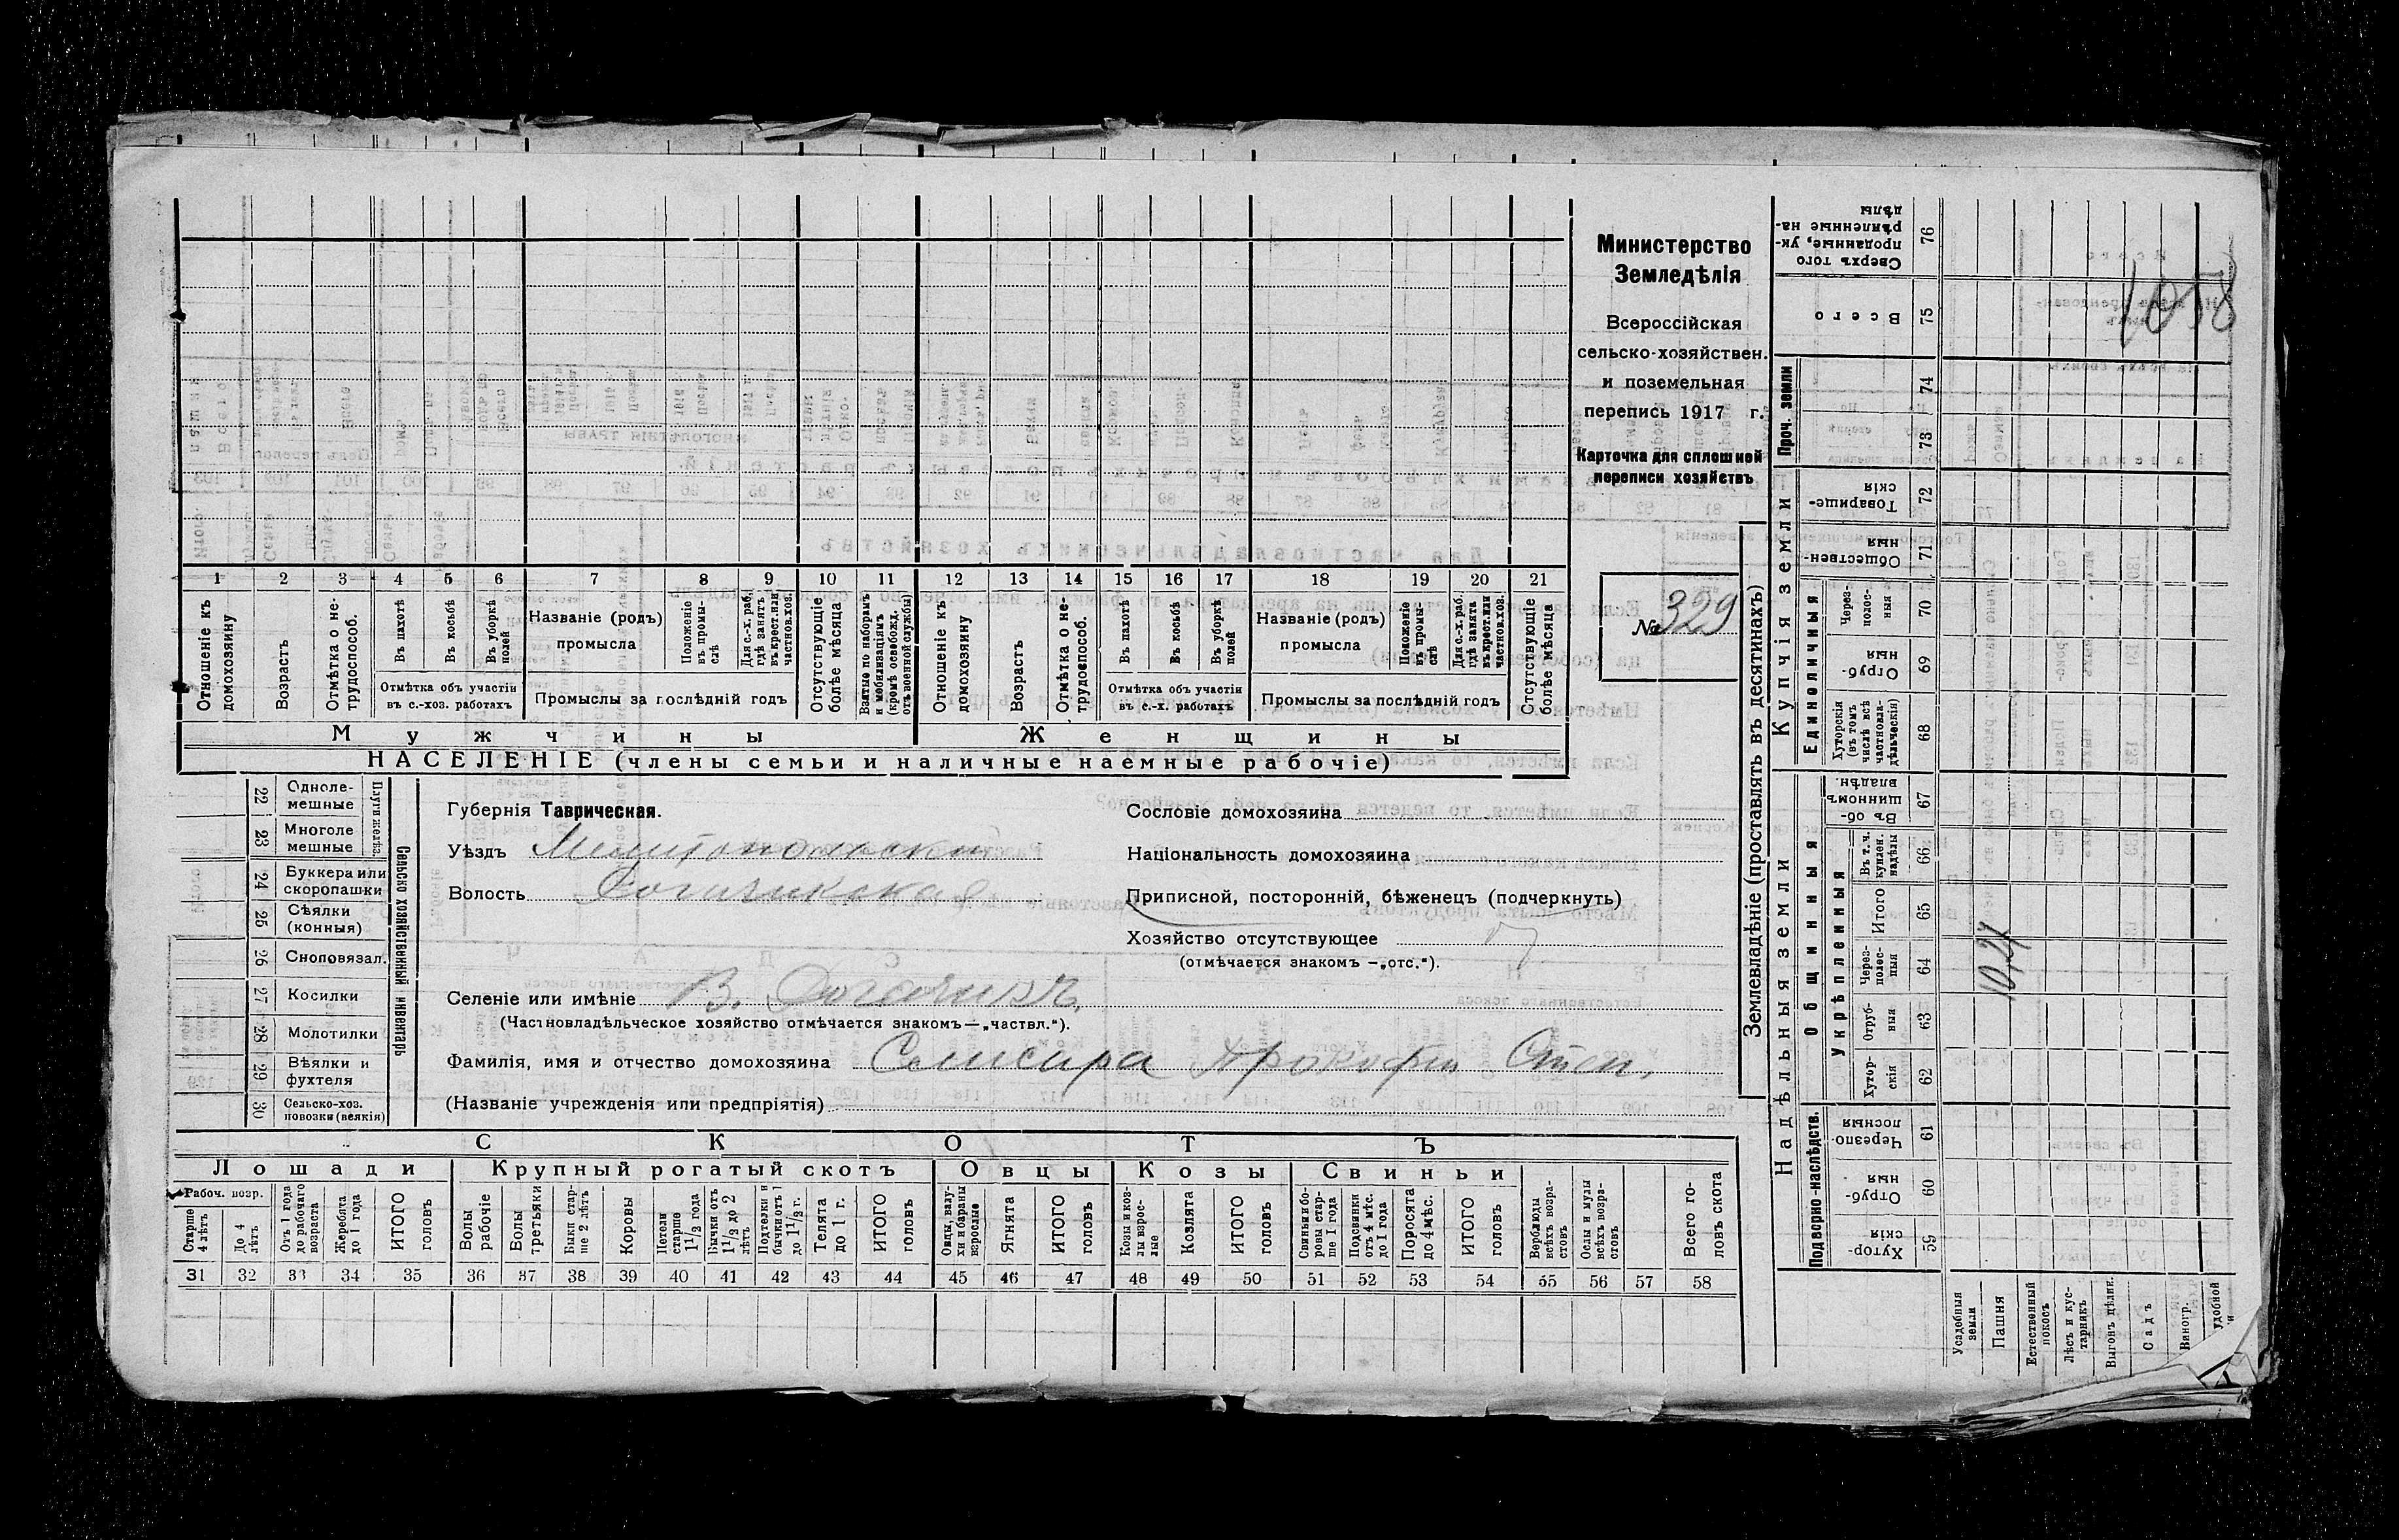 Министерство
Земледѣлія
Всероссійская
сельско-хозяйствен.
и поземельная
перепись 1917 г.
Карточка для сплошной
переписи хозяйствъ
№ 329
1058
1 2 3 4 5 6 7 8 9 10 11 12 13 14 15 16 17 18 19 20 21
Отношеніе къ домохозяину
Возрастъ
Отмѣтка о не-трудоспособ.
Въ пахотѣ
Въ косьбѣ
Въ уборкѣ полей
Отмѣтка объ участіи въ с.-хоз. работахъ
Названіе (родъ) промысла
Положеніе въ промы-слѣ
Для с.-х. раб. гдѣ занятъ въ крест. или частнов. хоз.
Промыслы за послѣдній годъ
Отсутствующіе болѣе мѣсяца
Взятые по наборамъ и мобилизаціямъ (кромѣ освобожд. отъ военной службы)
Отношеніе къ домохозяину
Возрастъ
Отмѣтка о не-трудоспособ.
Въ пахотѣ
Въ косьбѣ
Въ уборкѣ полей
Отмѣтка объ участіи въ с.-х. работахъ
Названіе (родъ) промысла
Положеніе въ промы-слѣ
Для с.-х. раб. гдѣ занята въ крест. или частнов. хоз.
Промыслы за послѣдній годъ
Отсутствующіе болѣе мѣсяца
Мужчины Женщины
НАСЕЛЕНІЕ (члены семьи и наличные наемные рабочіе)
22 Одноле-мешные
23 Многоле мешные
Плуги желѣз.
24 Буккера или скоропашки
25 Сѣялки (конныя)
26 Сноповязал.
27 Косилки
28 Молотилки
29 Вѣялки и фухтеля
30 Сельско-хоз. повозки (всякія)
Сельско хозяйственный инвентарь
Губернія Таврическая.
Уѣздъ Мелитопольскій
Волость Рогачикская
Селеніе или имѣніе В. Рогачикъ
(Частновладѣльческое хозяйство отмѣчается знакомъ—„частвл.“).
Фамилія, имя и отчество домохозяина Прокофій Степ.
(Названіе учрежденія или предпріятія)
Сословіе домохозяина
Національность домохозяина
Приписной, посторонній, бѣженецъ (подчеркнуть)
Хозяйство отсутствующее
(отмѣчается знакомъ —„отс.“).
СКОТЪ
Лошади Крупный рогатый скотъ Овцы Козы Свиньи
Рабоч. возр.
Старше 4 лѣтъ
До 4 лѣтъ
Отъ 1 года до рабочаго возраста
Жеребята до 1 года
ИТОГО головъ
Волы рабочіе
Волы третьяки
Быки стар-ше 2 лѣтъ
Коровы
Нетели старше 1 1/2 года
Бычки отъ 1 1/2 до 2 лѣтъ
Подтелки и бычки отъ 1 до 1 1/2 г.
Телята до 1 г.
ИТОГО головъ
Овцы, валу-хи и бараны взрослые
Ягнята
ИТОГО головъ
Козы и коз-лы взрос-лые
Козлята
ИТОГО головъ
Свиньи и бо-ровы стар-ше 1 года
Подсвинки отъ 4 мѣс. до 1 года
Поросята до 4 мѣс.
ИТОГО головъ
Верблюды всѣхъ возра-стовъ
Ослы и мулы всѣхъ возра-стовъ
Всего го-ловъ скота
31 32 33 34 35 36 37 38 39 40 41 42 43 44 45 46 47 48 49 50 51 52 53 54 55 56 57 58
Землевладѣніе (проставлять въ десятинахъ)
Надѣльныя земли Купчія земли Проч. земли
Подворно-наслѣдств.
Общинныя
Укрѣпленныя
Единоличныя
Хутор-скія 59
Отруб-ныя 60
Черезпо-лосныя 61
Хутор-скія 62
Отруб-ныя 63
Через-полос-ныя 64
Итого 65
Въ т. ч. куплен. надѣлы 66
Въ об-щинномъ владѣн. 67
Хуторскія (въ томъ числѣ всѣ частновла-дѣльческія) 68
Отруб-ныя 69
Через-полос-ныя 70
Обществен-ныя 71
Товарище-скія 72
73
74
Всего 75
Сверхъ того проданные, ук-рѣпленные на-дѣлы 76
Усадебныя земли
Пашня
Естественный покосъ
Лѣсъ и кус-тарникъ
Выгонъ дѣлин.
Садъ
Виногр.
удобной